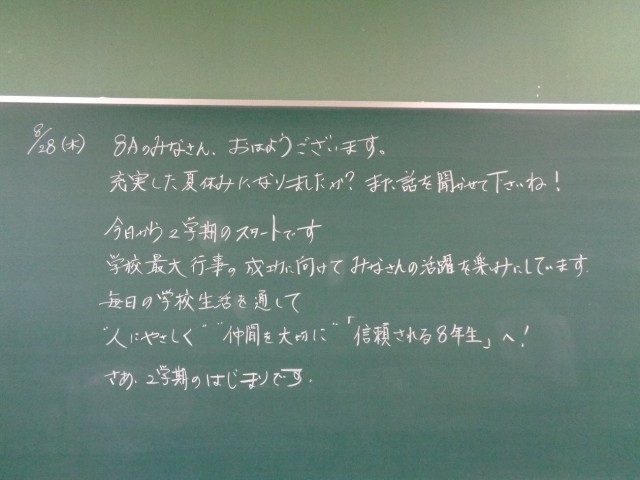 8/28(木) 8Aのみなさん、おはようございます。
充実した夏休みになりましたか？また話を聞かせて下さいね！
今日から2学期のスタートです
学校最大行事の成功に向けてみなさんの活躍を楽しみにしています.
毎日の学校生活を通して
"人にやさしく" "仲間を大切に" 「信頼される8年生」へ！
さあ、2学期のはじまりです。